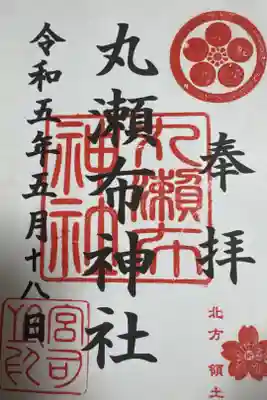 奉拝
丸瀬布神社
令和五年五月十八日
丸瀬布
神社
宮司
之印
北方領土